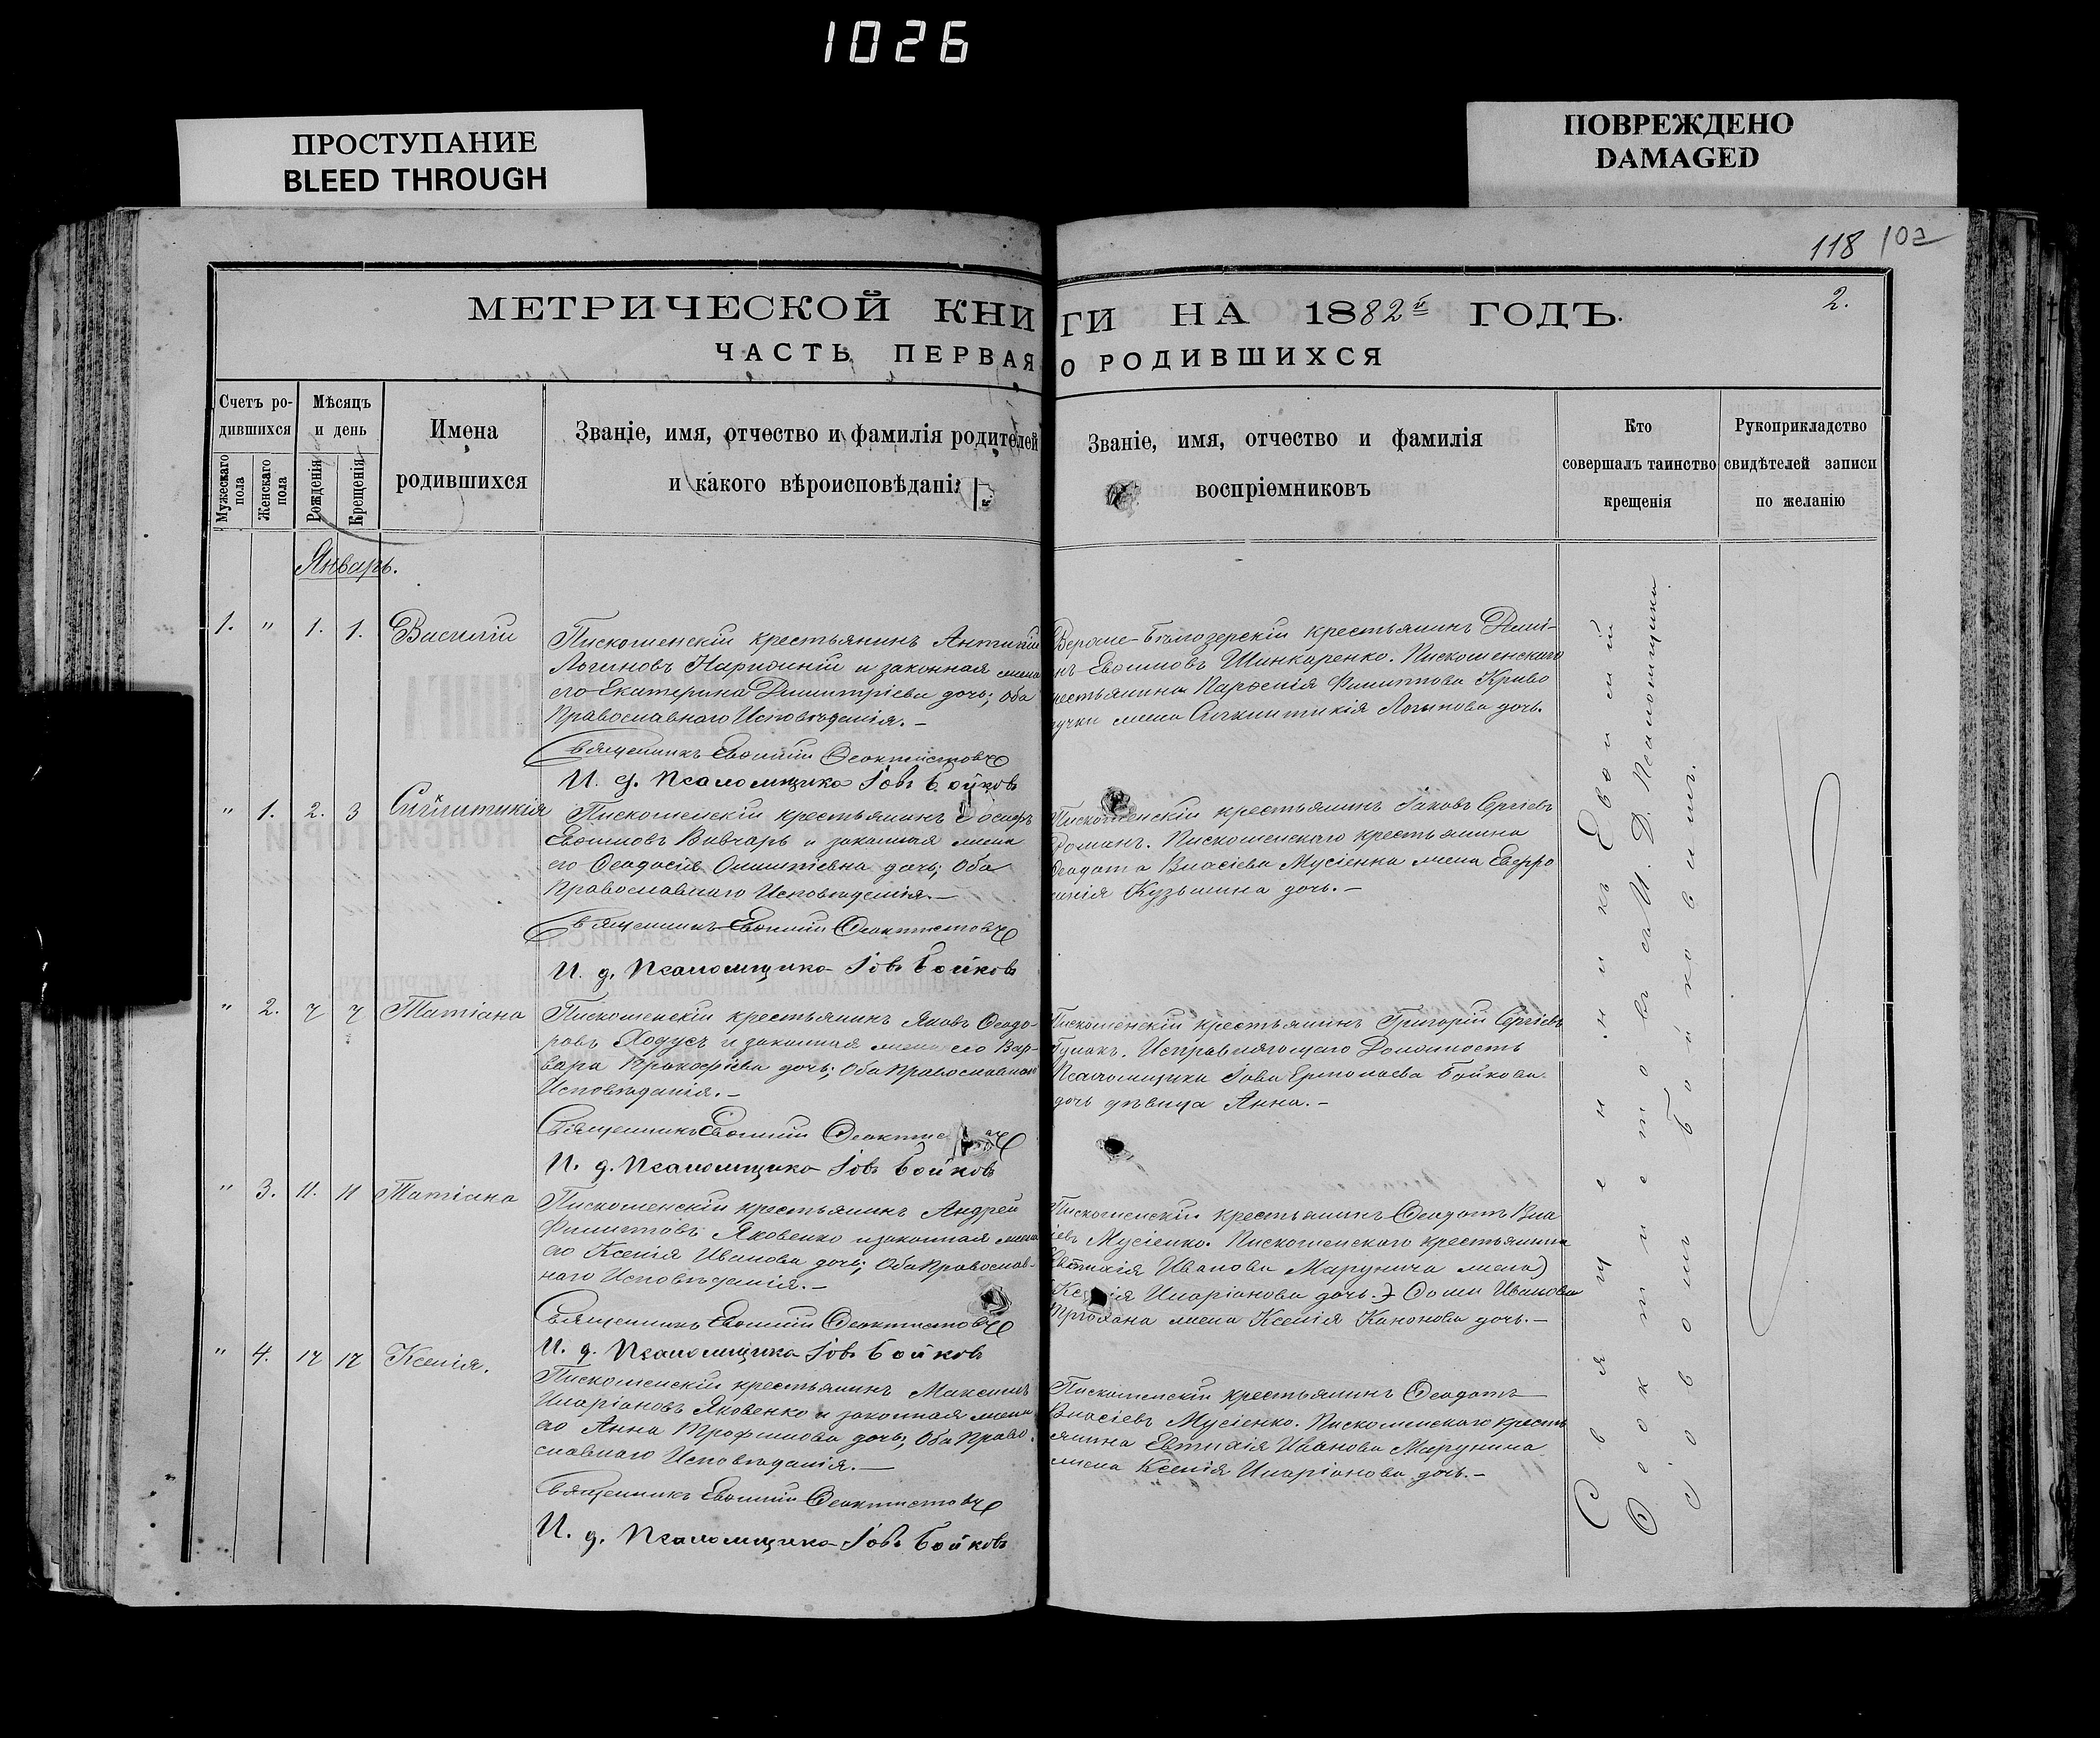 1026
ПРОСТУПАНИЕ
BLEED THROUGH
ПОВРЕЖДЕНО
DAMAGED
118 102
2.
МЕТРИЧЕСКОЙ КНИГИ НА 1882й ГОДЪ.
ЧАСТЬ ПЕРВАЯ О РОДИВШИХСЯ
Счетъ ро-
дившихся
Мужескаго пола
Женскаго пола
Мѣсяцъ
и день
Рожденія
Крещенія
Имена
родившихся
Званіе, имя, отчество и фамилія родителей
и какого вѣроисповѣданія
Званіе, имя, отчество и фамилія
воспріемниковъ
Кто
совершалъ таинство
крещенія
Рукоприкладство
свидѣтелей записи
по желанію
Январь.
1. " 1. 1. Василій
Пискошенскій крестьянинъ Антипій
Логиновъ и законная жена
его Екатерина Димитріева дочь; Оба
Православнаго Исповѣданія.-
Священникъ Евѳимій Ѳеоктистовъ
И. д. Псаломщика Іовъ Бойковъ
Бѣлозерскій крестьянинъ
Евѳимовъ Шинкаренко. Пискошенскаго
крестьянина Парѳенія Филиппова Криво
ручки жена Сигклитикія Логинова дочь.
" 1. 2. 3 Сигклитикія
Пискошенскій крестьянинъ Іосифъ
Евѳимовъ Вивчарь и законная жена
его Ѳеодосія дочь; Оба
Православнаго Исповѣданія.-
Священникъ Евѳимій Ѳеоктистовъ
И. д. Псаломщика Іовъ Бойковъ
Пискошенскій крестьянинъ Іаковъ Сергіевъ
Пискошенскаго крестьянина
Ѳеодота Власіева Мусіенка жена Евфро
синія Кузьмина дочь.-
" 2. 7 7 Татіана
Пискошенскій крестьянинъ Яковъ Ѳеодо-
ровъ Ходусъ и законная жена его Вар-
вара Прокофіева дочь; Оба Православнаго
Исповѣданія.-
Священникъ Евѳимій Ѳеоктистовъ
И. д. Псаломщика Іовъ Бойковъ
Пискошенскій крестьянинъ Григорій Сергіевъ
Исправляющаго Должность
Псаломщика Іова Ермолаева Бойкова
дочь дѣвица Анна.-
" 3. 11. 11 Татіана
Пискошенскій крестьянинъ Андрей
Филипповъ Яковенко и законная жена
его Ксенія Иванова дочь; Оба Православ-
наго Исповѣданія.-
Священникъ Евѳимій Ѳеоктистовъ
И. д. Псаломщика Іовъ Бойковъ
Пискошенскій крестьянинъ Ѳеодотъ Вла
сіевъ Мусіенко. Пискошенскаго крестьянина
Иванова жена)
Ксенія Иларіонова дочь.) Ѳомы Иванова
жена Ксенія Кононова дочь.-
" 4. 17 17 Ксенія.
Пискошенскій крестьянинъ Максимъ
Иларіоновъ Яковенко и законная жена
его Анна Трофимова дочь; Оба Право-
славнаго Исповѣданія.-
Священникъ Евѳимій Ѳеоктистовъ
И. д. Псаломщика Іовъ Бойковъ
Пискошенскій крестьянинъ Ѳеодотъ
Власіевъ Мусіенко. Пискошенскаго кресть
янина Иванова
жена Ксенія Иларіонова дочь.-
Священникъ Евѳимій
Ѳеоктистовъ съ И. Д. Псаломщика
Іовомъ Бойковимъ.